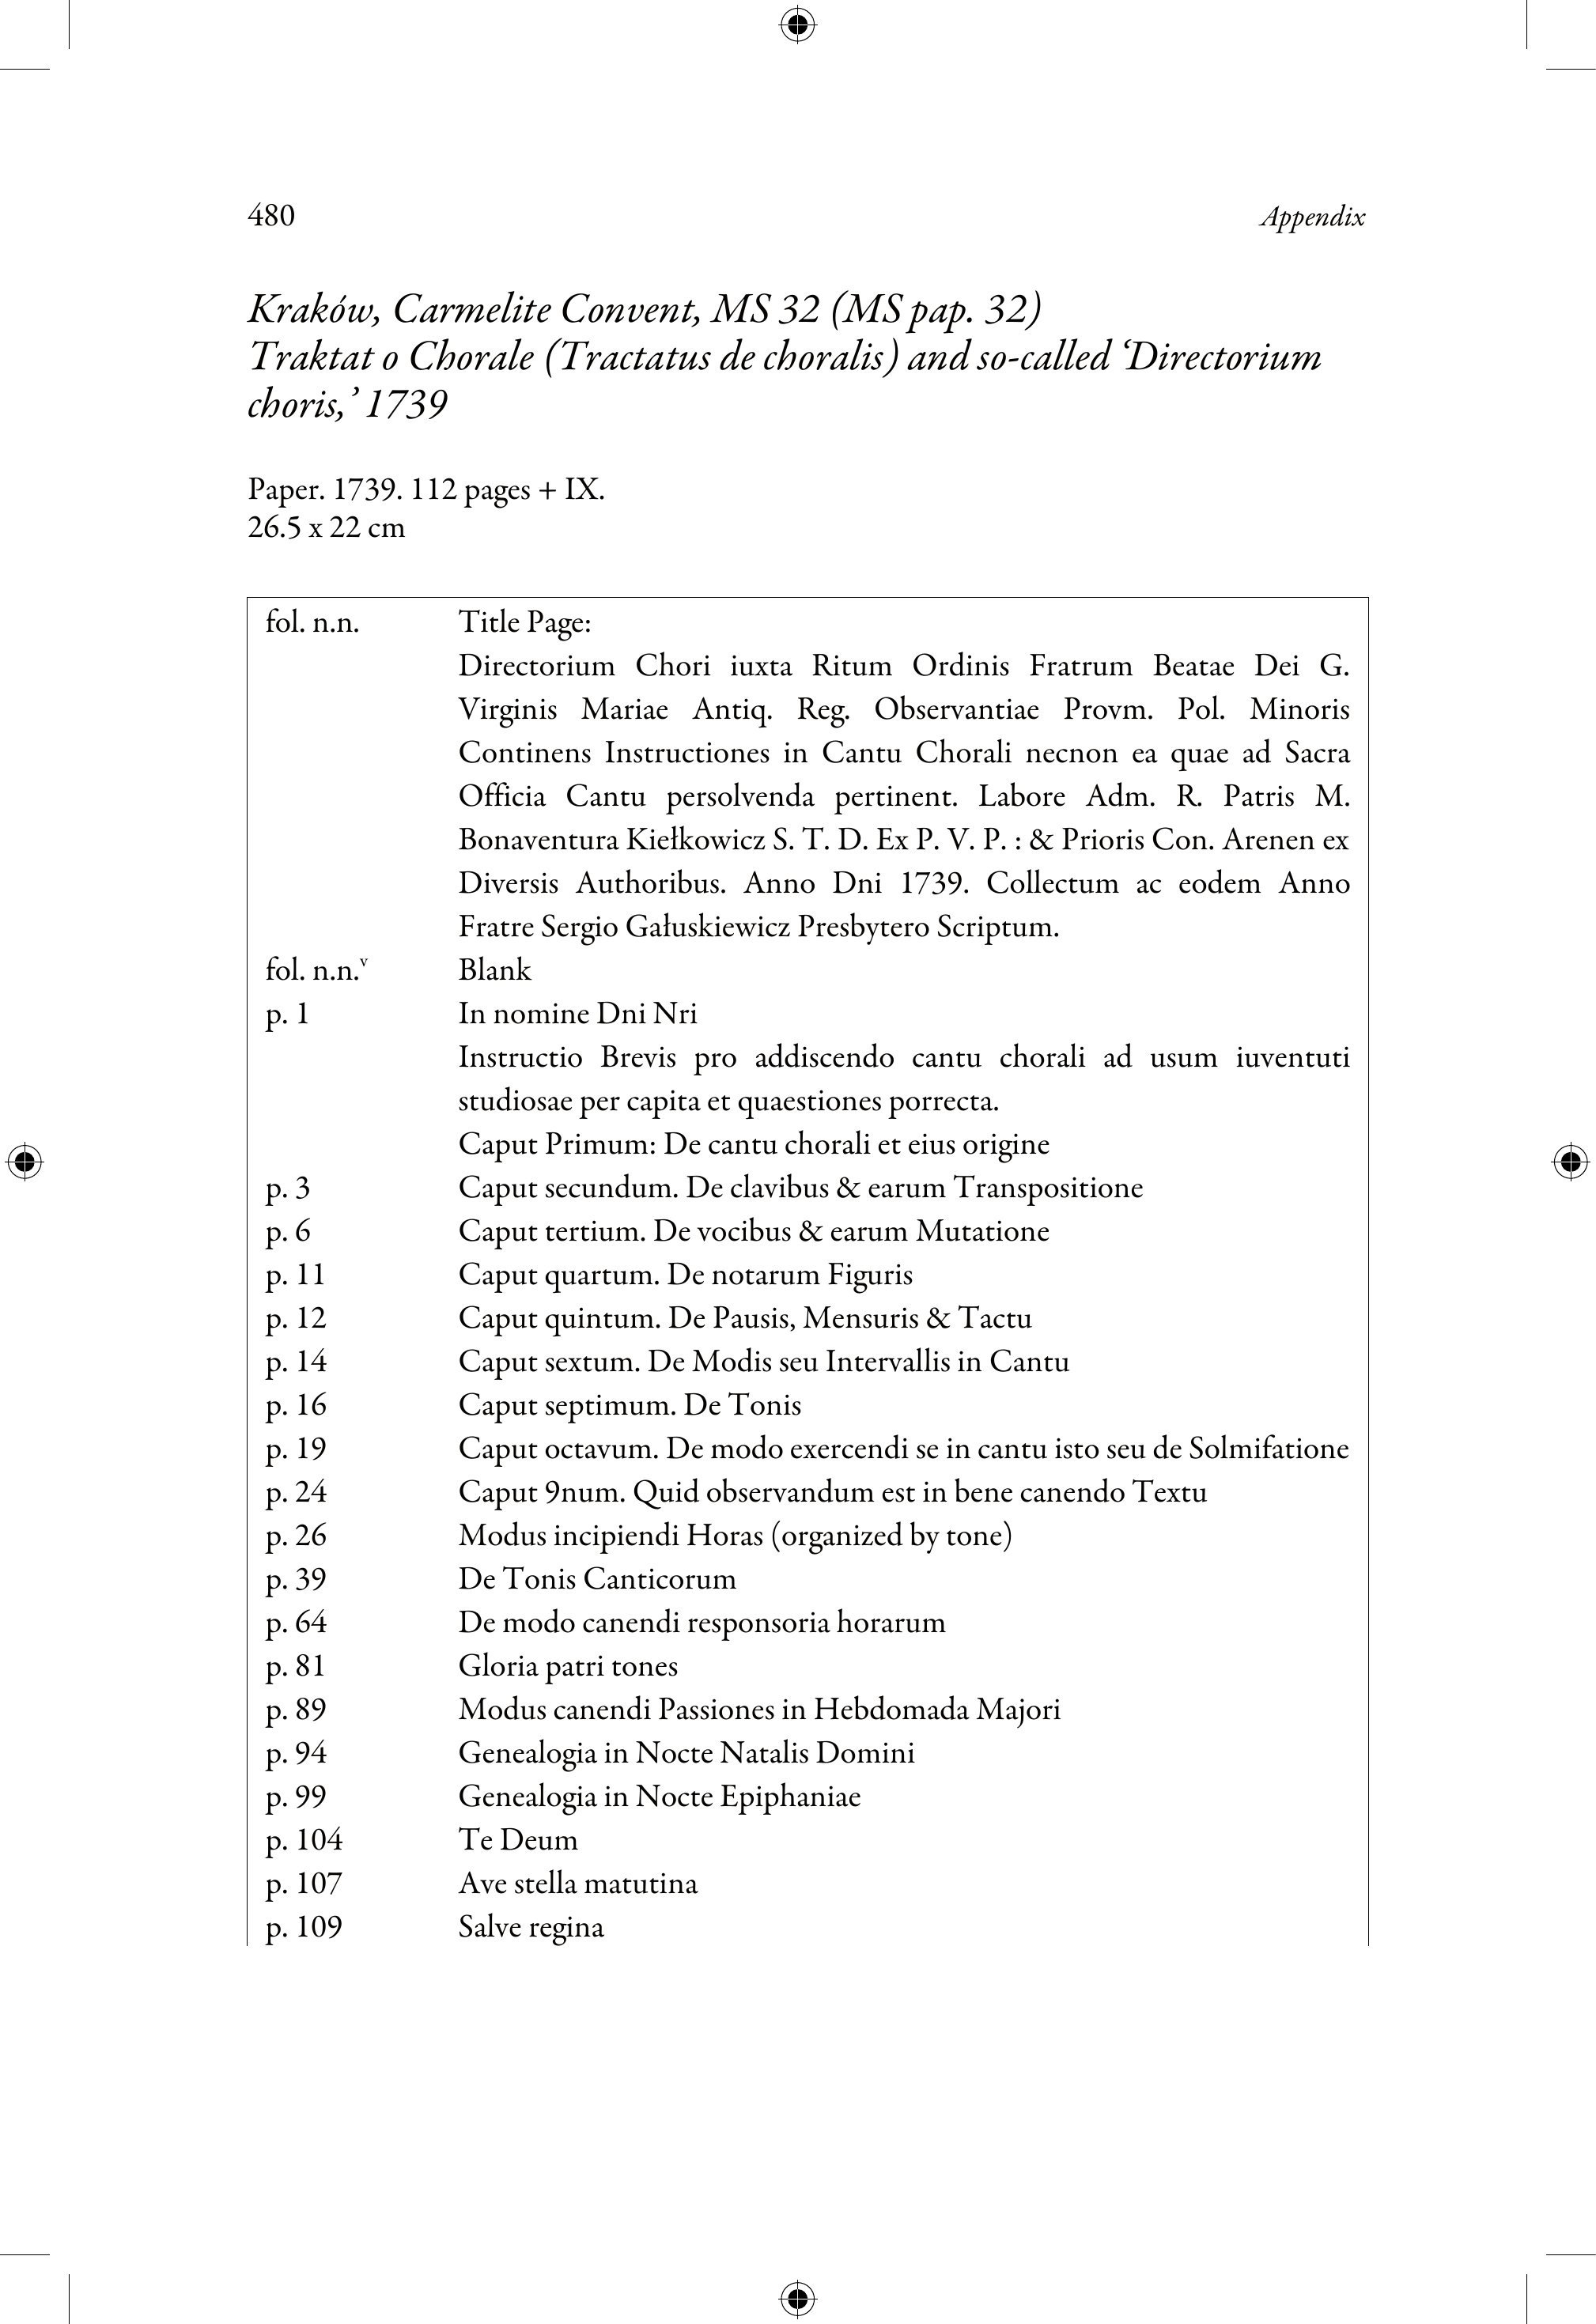 480 Appendix
Kraków, Carmelite Convent, MS 32 (MS pap. 32)
Traktat o Chorale (Tractatus de choralis) and so-called ‘Directorium
choris,’ 1739
Paper. 1739. 112 pages + IX.
26.5 x 22 cm
fol. n.n. Title Page:
Directorium Chori iuxta Ritum Ordinis Fratrum Beatae Dei G.
Virginis Mariae Antiq. Reg. Observantiae Provm. Pol. Minoris
Continens Instructiones in Cantu Chorali necnon ea quae ad Sacra
Officia Cantu persolvenda pertinent. Labore Adm. R. Patris M.
Bonaventura Kiełkowicz S. T. D. Ex P. V. P. : & Prioris Con. Arenen ex
Diversis Authoribus. Anno Dni 1739. Collectum ac eodem Anno
Fratre Sergio Gałuskiewicz Presbytero Scriptum.
fol. n.n.v Blank
p. 1 In nomine Dni Nri
Instructio Brevis pro addiscendo cantu chorali ad usum iuventuti
studiosae per capita et quaestiones porrecta.
Caput Primum: De cantu chorali et eius origine
p. 3 Caput secundum. De clavibus & earum Transpositione
p. 6 Caput tertium. De vocibus & earum Mutatione
p. 11 Caput quartum. De notarum Figuris
p. 12 Caput quintum. De Pausis, Mensuris & Tactu
p. 14 Caput sextum. De Modis seu Intervallis in Cantu
p. 16 Caput septimum. De Tonis
p. 19 Caput octavum. De modo exercendi se in cantu isto seu de Solmifatione
p. 24 Caput 9num. Quid observandum est in bene canendo Textu
p. 26 Modus incipiendi Horas (organized by tone)
p. 39 De Tonis Canticorum
p. 64 De modo canendi responsoria horarum
p. 81 Gloria patri tones
p. 89 Modus canendi Passiones in Hebdomada Majori
p. 94 Genealogia in Nocte Natalis Domini
p. 99 Genealogia in Nocte Epiphaniae
p. 104 Te Deum
p. 107 Ave stella matutina
p. 109 Salve regina